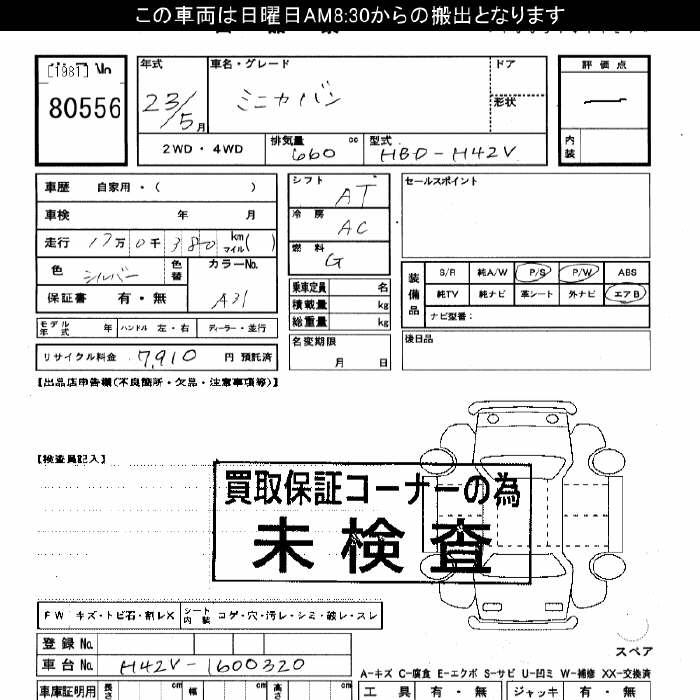 この車両は日曜日AM8:30からの搬出となります
[1981] No
80556
年式 車名・グレード ドア 評価点
23/5月 ミニカバン 形状 —
2WD・4WD 排気量 660 cc 型式 HBD-H42V 内装
車歴 自家用・( )
車検 年 月
走行 17万0千380 km マイル( )
色 シルバー 色替 カラーNo. A31
保証書 有・無
モデル年式 年 ハンドル 左・右 ディーラー・並行
リサイクル料金 7,910 円 預託済
シフト AT
冷房 AC
燃料 G
乗車定員 名
積載量 kg
総重量 kg
名変期限 月 日
セールスポイント
装備品 S/R 純A/W P/S P/W ABS
純TV 純ナビ 革シート 外ナビ エアB
ナビ型番:
後日品
【出品店申告欄(不良箇所・欠品・注意事項等)】
【検査員記入】
買取保証コーナーの為
未検査
FW キズ・トビ石・割レX シート内装 コゲ・穴・汚レ・シミ・破レ・スレ
登録No.
車台No. H42V-1600320
スペア
A-キズ C-腐食 E-エクボ S-サビ U-凹ミ W-補修 XX-交換済
車庫証明用 長さ cm 幅 cm 高さ cm 工具 有・無 ジャッキ 有・無